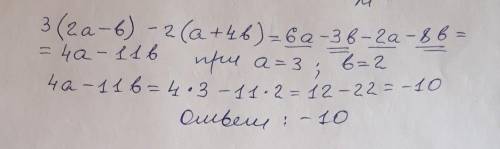 3(2а-в) -2(а+4в)=6а-3в-2а-8в=
=4а-11в при а=3 ; в=2
4а-11в=4·3-11·2=12-22=-10
Ответ : -10